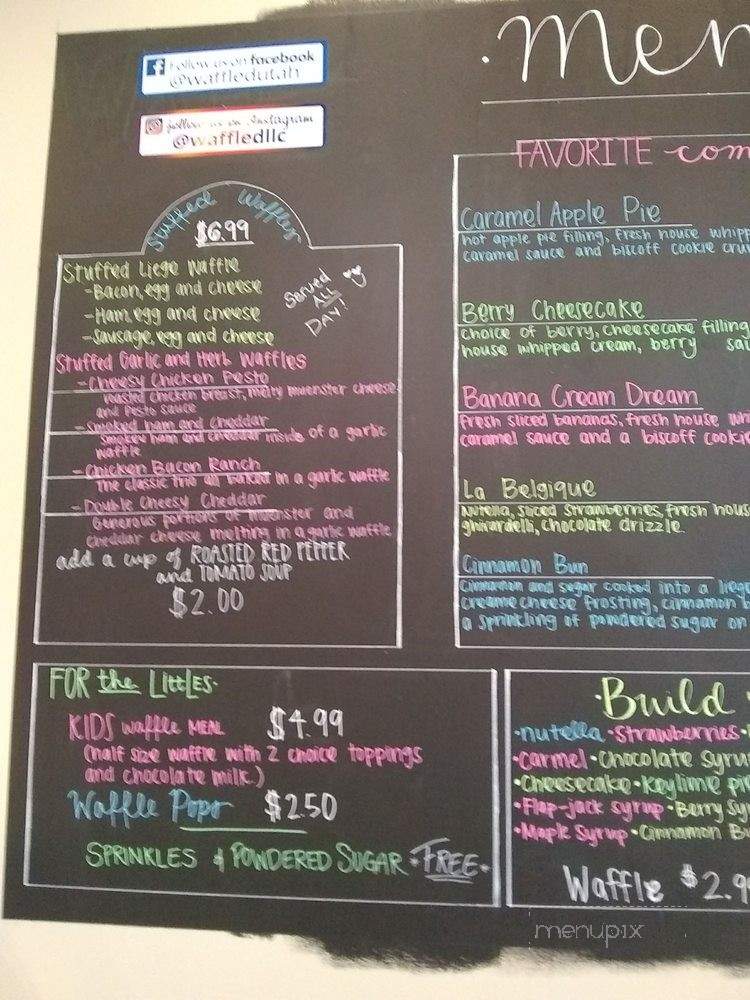 Follow us on facebook
@waffledutah
follow us on Instagram
@waffledllc
Men
Stuffed Waffles
$6.99
Stuffed Liege Waffle
-Bacon, egg and cheese
-Ham, egg and cheese
-Sausage, egg and cheese
Served
ALL
DAY!
Stuffed Garlic and Herb Waffles
-Cheesy Chicken Pesto
roasted chicken breast, melty muenster cheese
and pesto sauce
-Smoked ham and cheddar
Smoked ham and cheddar inside of a garlic
waffle
-Chicken Bacon Ranch
The classic trio all baked in a garlic waffle
-Double Cheesy Cheddar
Generous portions of muenster and
cheddar cheese melting in a garlic waffle
add a cup of ROASTED RED PEPPER
and TOMATO SOUP
$2.00
FAVORITE com
Caramel Apple Pie
hot apple pie filling, fresh house whipp
caramel sauce and biscoff cookie cru
Berry Cheesecake
choice of berry, cheesecake filling
house whipped cream, berry sau
Banana Cream Dream
fresh sliced bananas, fresh house wh
caramel sauce and a biscoff cooki
La Belgique
Nutella, sliced strawberries, fresh hous
ghirardelli, chocolate drizzle.
Cinnamon Bun
Cinnamon and sugar cooked into a liege
creamcheese frosting, cinnamon
a sprinkling of powdered sugar on
FOR the LITTLES.
KIDS waffle MEAL $4.99
(half size waffle with 2 choice toppings
and chocolate milk.)
Waffle Pops $2.50
SPRINKLES & POWDERED SUGAR •FREE•
•Build
•nutella •Strawberries•
•Carmel •Chocolate Syru
•Cheesecake •Keylime pi
•Flap-jack syrup •Berry Sy
•Maple Syrup •Cinnamon B
Waffle $2.9
menupix